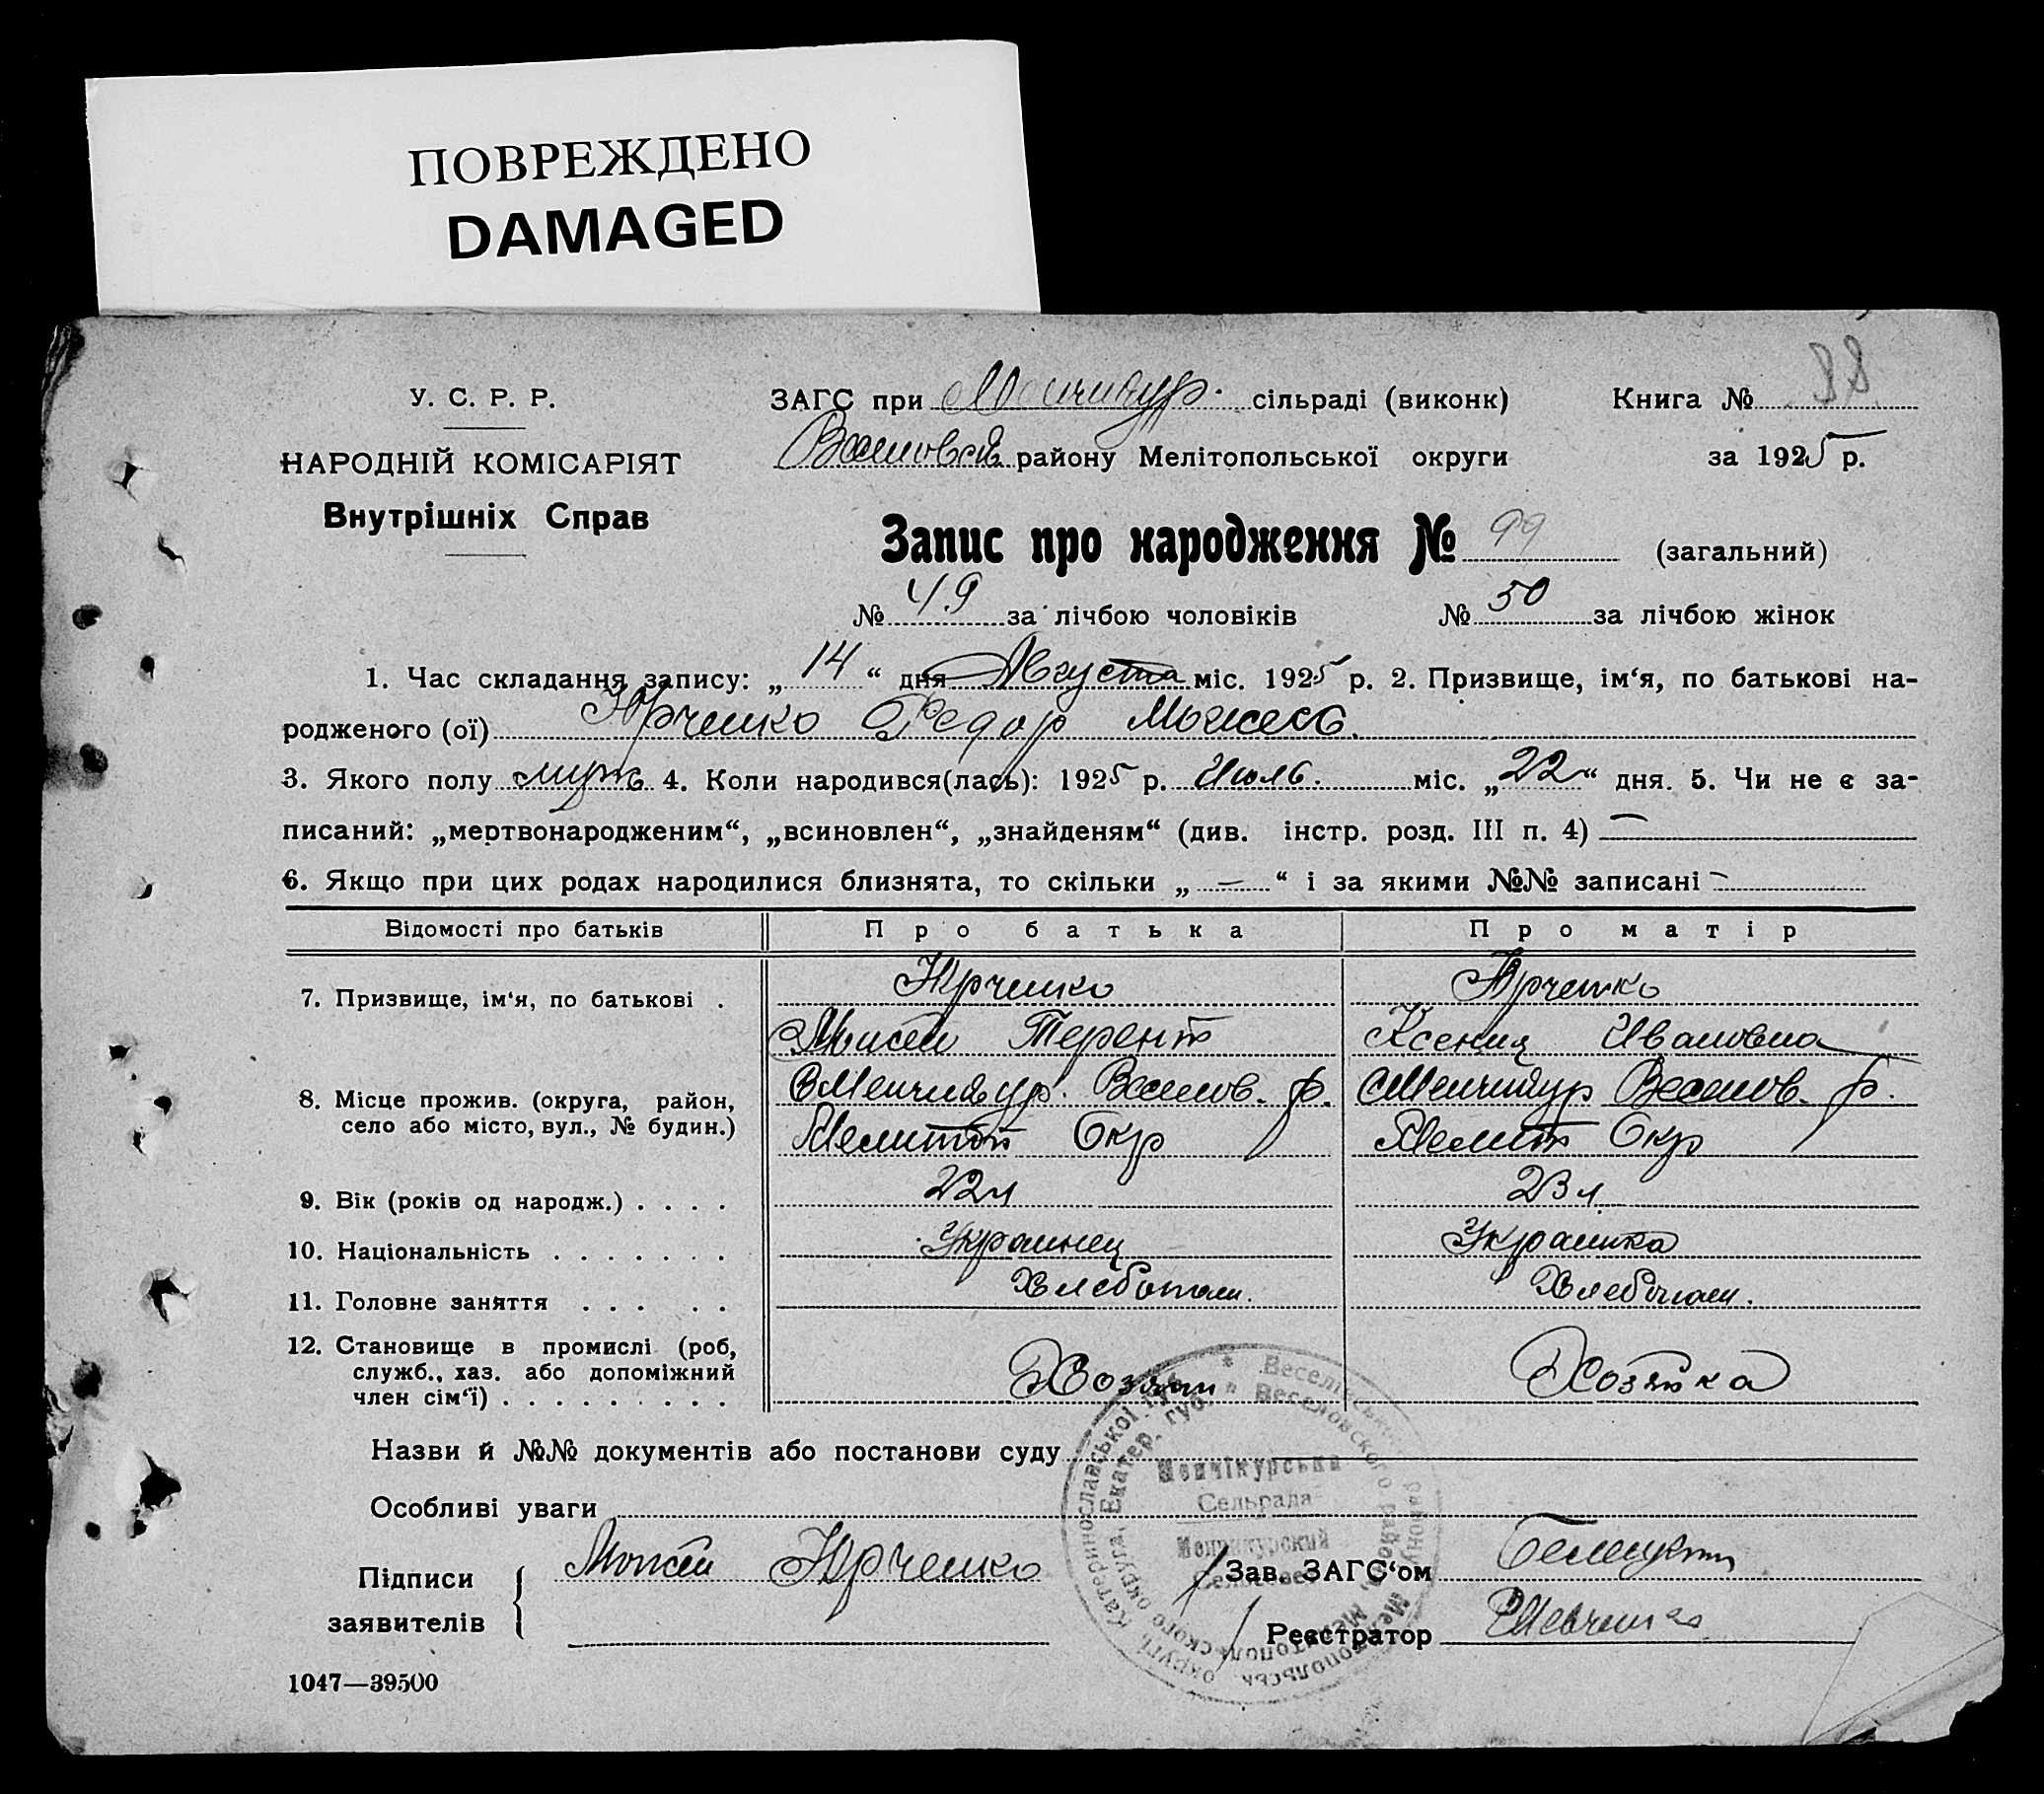 ПОВРЕЖДЕНО
DAMAGED
У. С. Р. Р.
НАРОДНІЙ КОМІСАРІЯТ
Внутрішніх Справ
ЗАГС при Менчикур. сільраді (виконк) Книга № 88
Веселовск району Мелітопольської округи за 1925 р.
Запис про народження № 99 (загальний)
№ 49 за лічбою чоловіків № 50 за лічбою жінок
1. Час складання запису: „ 14 “ дня Августа міс. 1925 р. 2. Призвище, ім‘я, по батькові на-
родженого (ої) Юрченко Федор
3. Якого полу муж 4. Коли народився(лась): 1925 р. Июль. міс. „22“ дня. 5. Чи не є за-
писаний: „мертвонародженим“, „всиновлен“, „знайденям“ (див. інстр. розд. III п. 4) —
6. Якщо при цих родах народилися близнята, то скільки „ — “ і за якими №№ записані —
Відомості про батьків Про батька Про матір
7. Призвище, ім‘я, по батькові . Юрченко Юрченко
Терент Ксения Ивановна
8. Місце прожив. (округа, район, село або місто, вул., № будин.) Менчикур. Веселов. р. Менчикур Веселов. р.
Мелитоп Окр Мелит Окр
9. Вік (років од народж.) . . . . 22 л 23 л
10. Національність . . . . . . . Украинец Украинка
11. Головне заняття . . . . . Хлебопаш. Хлебопаш.
12. Становище в промислі (роб, служб., хаз. або допоміжний член сім‘ї) . . . . . . . . . Хозяин Хозяйка
Назви й №№ документів або постанови суду
Особливі уваги
Підписи
заявителів
Юрченко
Зав. ЗАГС‘ом
Реєстратор Шевченко
Менчікурська
Сельрада
Менчикурский
Сельсовет
1047—39500